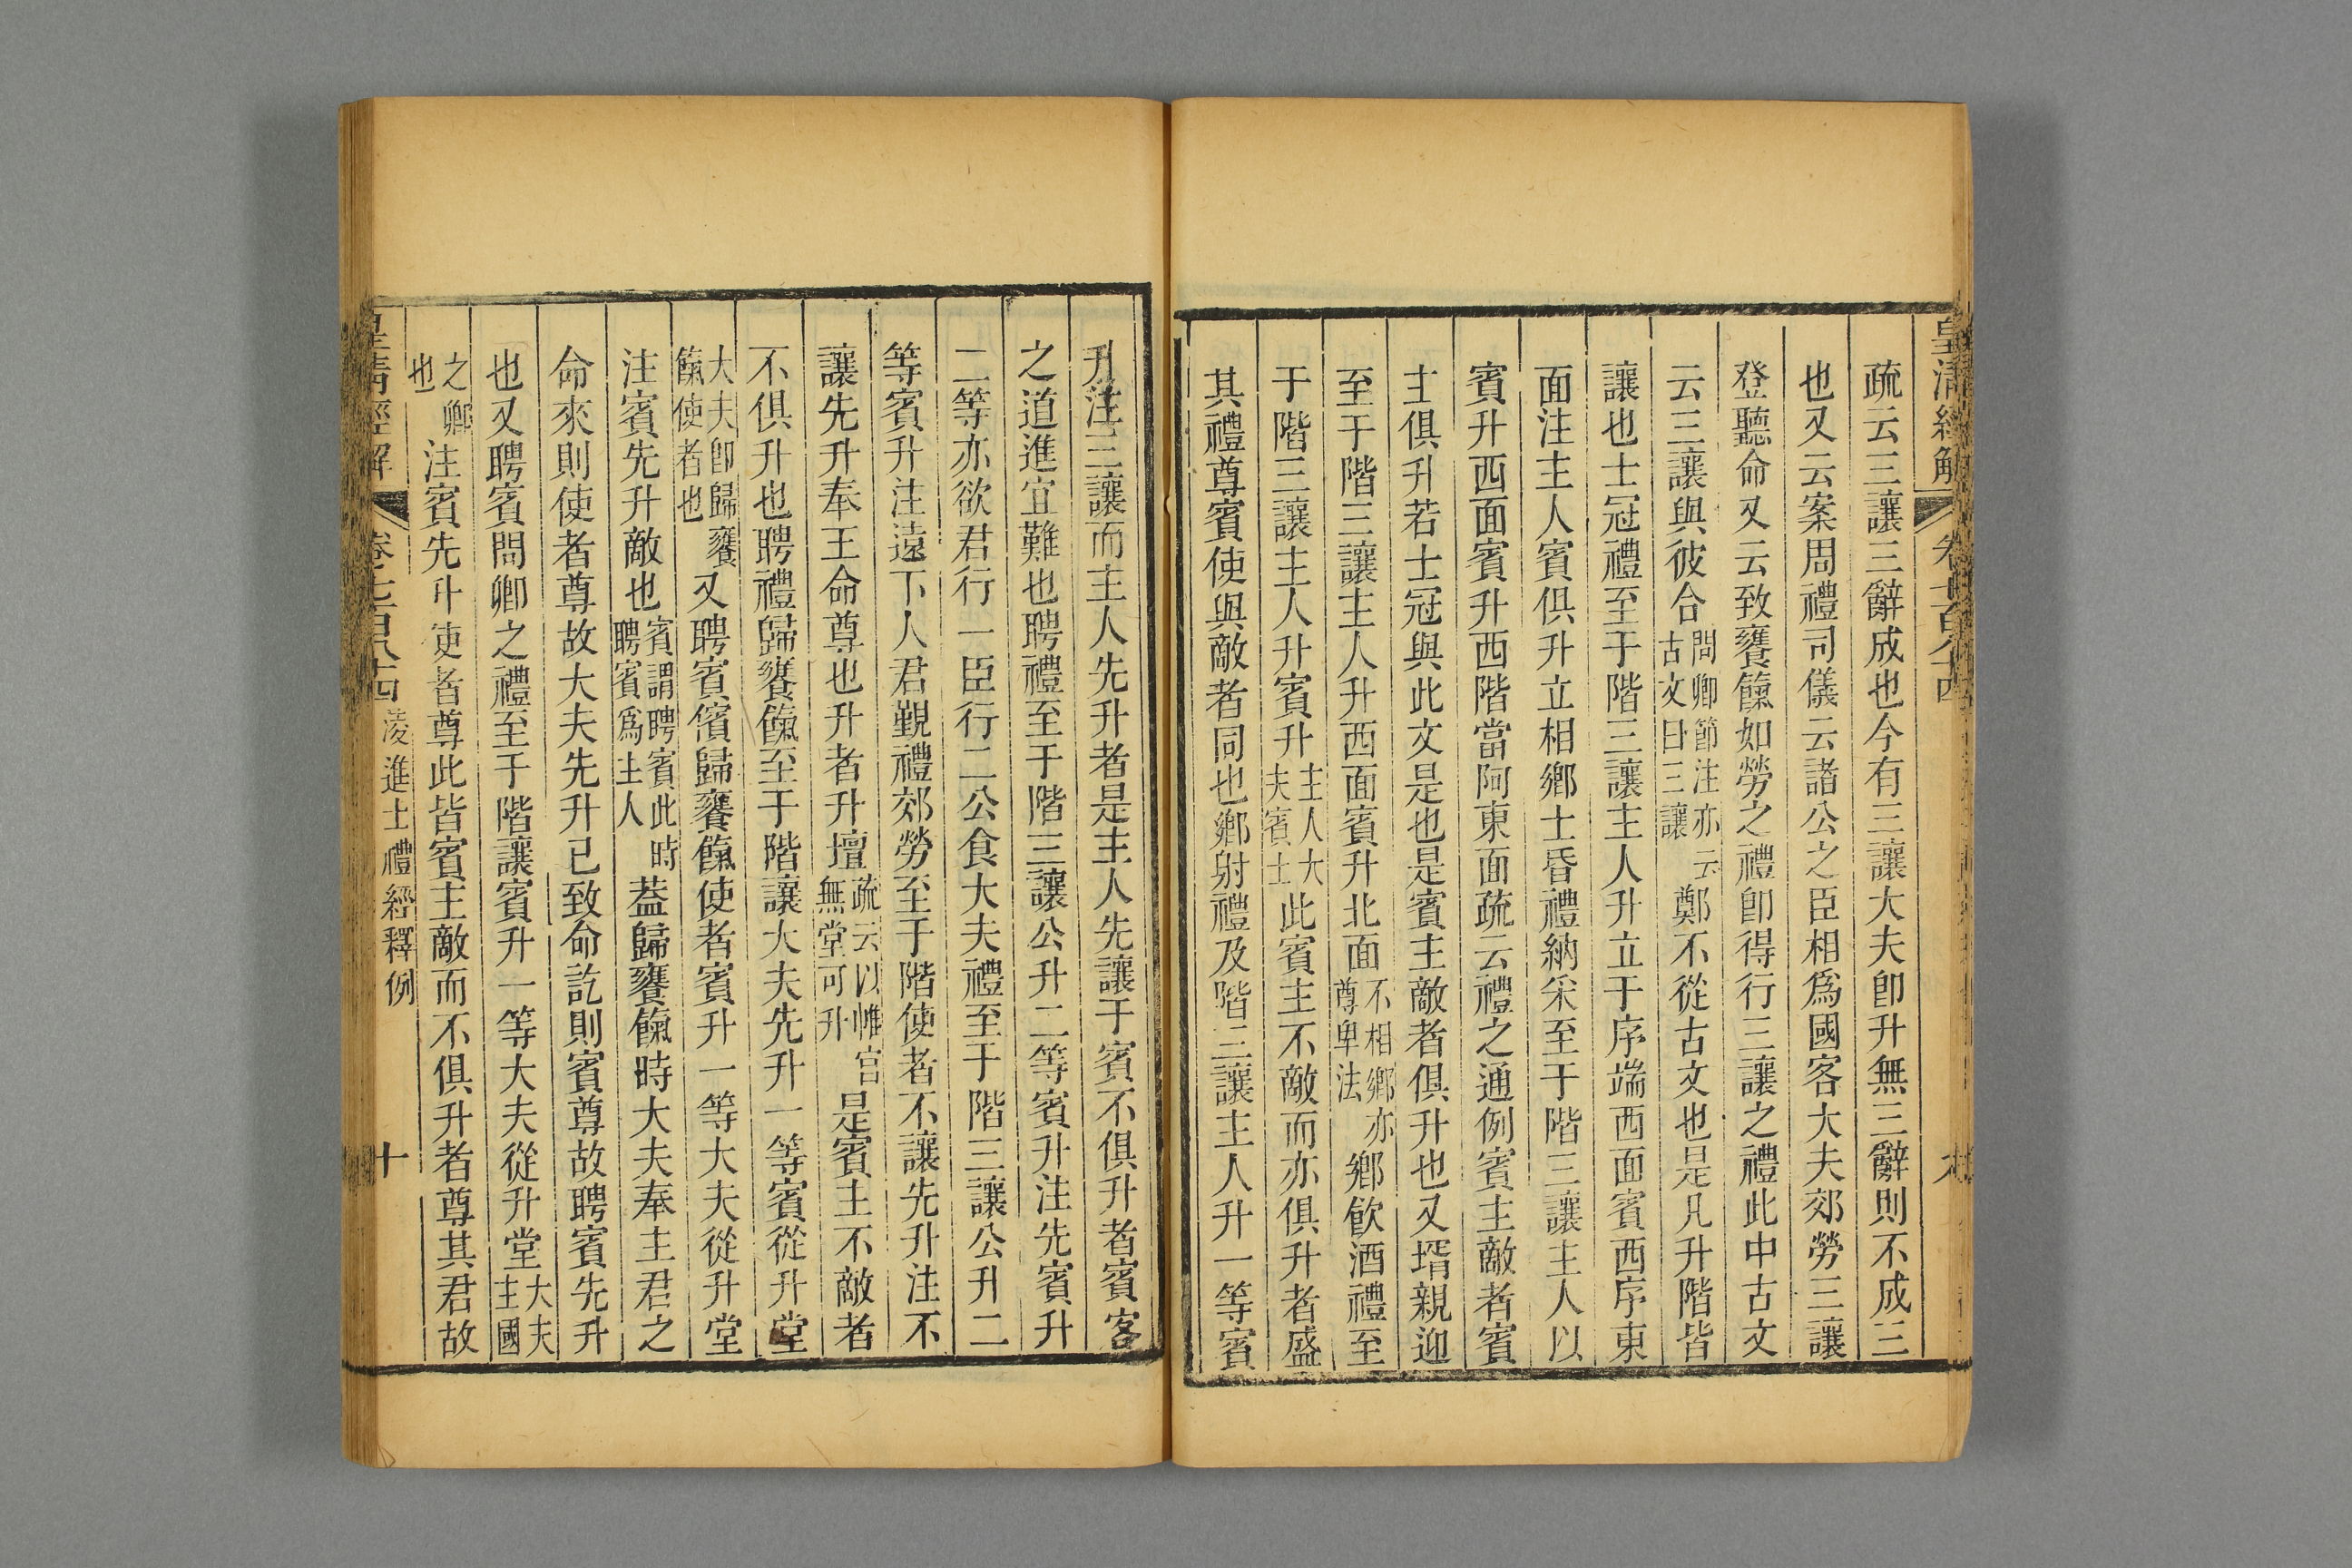 皇清經解 卷七百八十四 九
疏云三讓三辭成也今有三讓大夫卽升無三辭則不成三
也又云案周禮司儀云諸公之臣相爲國客大夫郊勞三讓
登聽命又云致饔餼如勞之禮卽得行三讓之禮此中古文
云三讓與彼合問卿節注亦云古文曰三讓鄭不從古文也是凡升階皆
讓也士冠禮至于階三讓主人升立于序端西面賓西序東
面注主人賓俱升立相鄉士昏禮納采至于階三讓主人以
賓升西面賓升西階當阿東面疏云禮之通例賓主敵者賓
主俱升若士冠與此文是也是賓主敵者俱升也又壻親迎
至于階三讓主人升西面賓升北面不相鄉亦尊卑法鄉飮酒禮至
于階三讓主人升賓升主人大夫賓士此賓主不敵而亦俱升者盛
其禮尊賓使與敵者同也鄉射禮及階三讓主人升一等賓
升注三讓而主人先升者是主人先讓于賓不俱升者賓客
之道進宜難也聘禮至于階三讓公升二等賓升注先賓升
二等亦欲君行一臣行二公食大夫禮至于階三讓公升二
等賓升注遠下人君覲禮郊勞至于階使者不讓先升注不
讓先升奉王命尊也升者升壇疏云以帷宫無堂可升是賓主不敵者
不俱升也聘禮歸饔餼至于階讓大夫先升一等賓從升堂
大夫卽歸饔餼使者也又聘賓儐歸饔餼使者賓升一等大夫從升堂
注賓先升敵也賓謂聘賓此時聘賓爲主人葢歸饔餼時大夫奉主君之
命來則使者尊故大夫先升已致命訖則賓尊故聘賓先升
也又聘賓問卿之禮至于階讓賓升一等大夫從升堂大夫主國
之卿也注賓先升使者尊此皆賓主敵而不俱升者尊其君故
皇清經解 卷七百八十四 淩進士禮經釋例 十